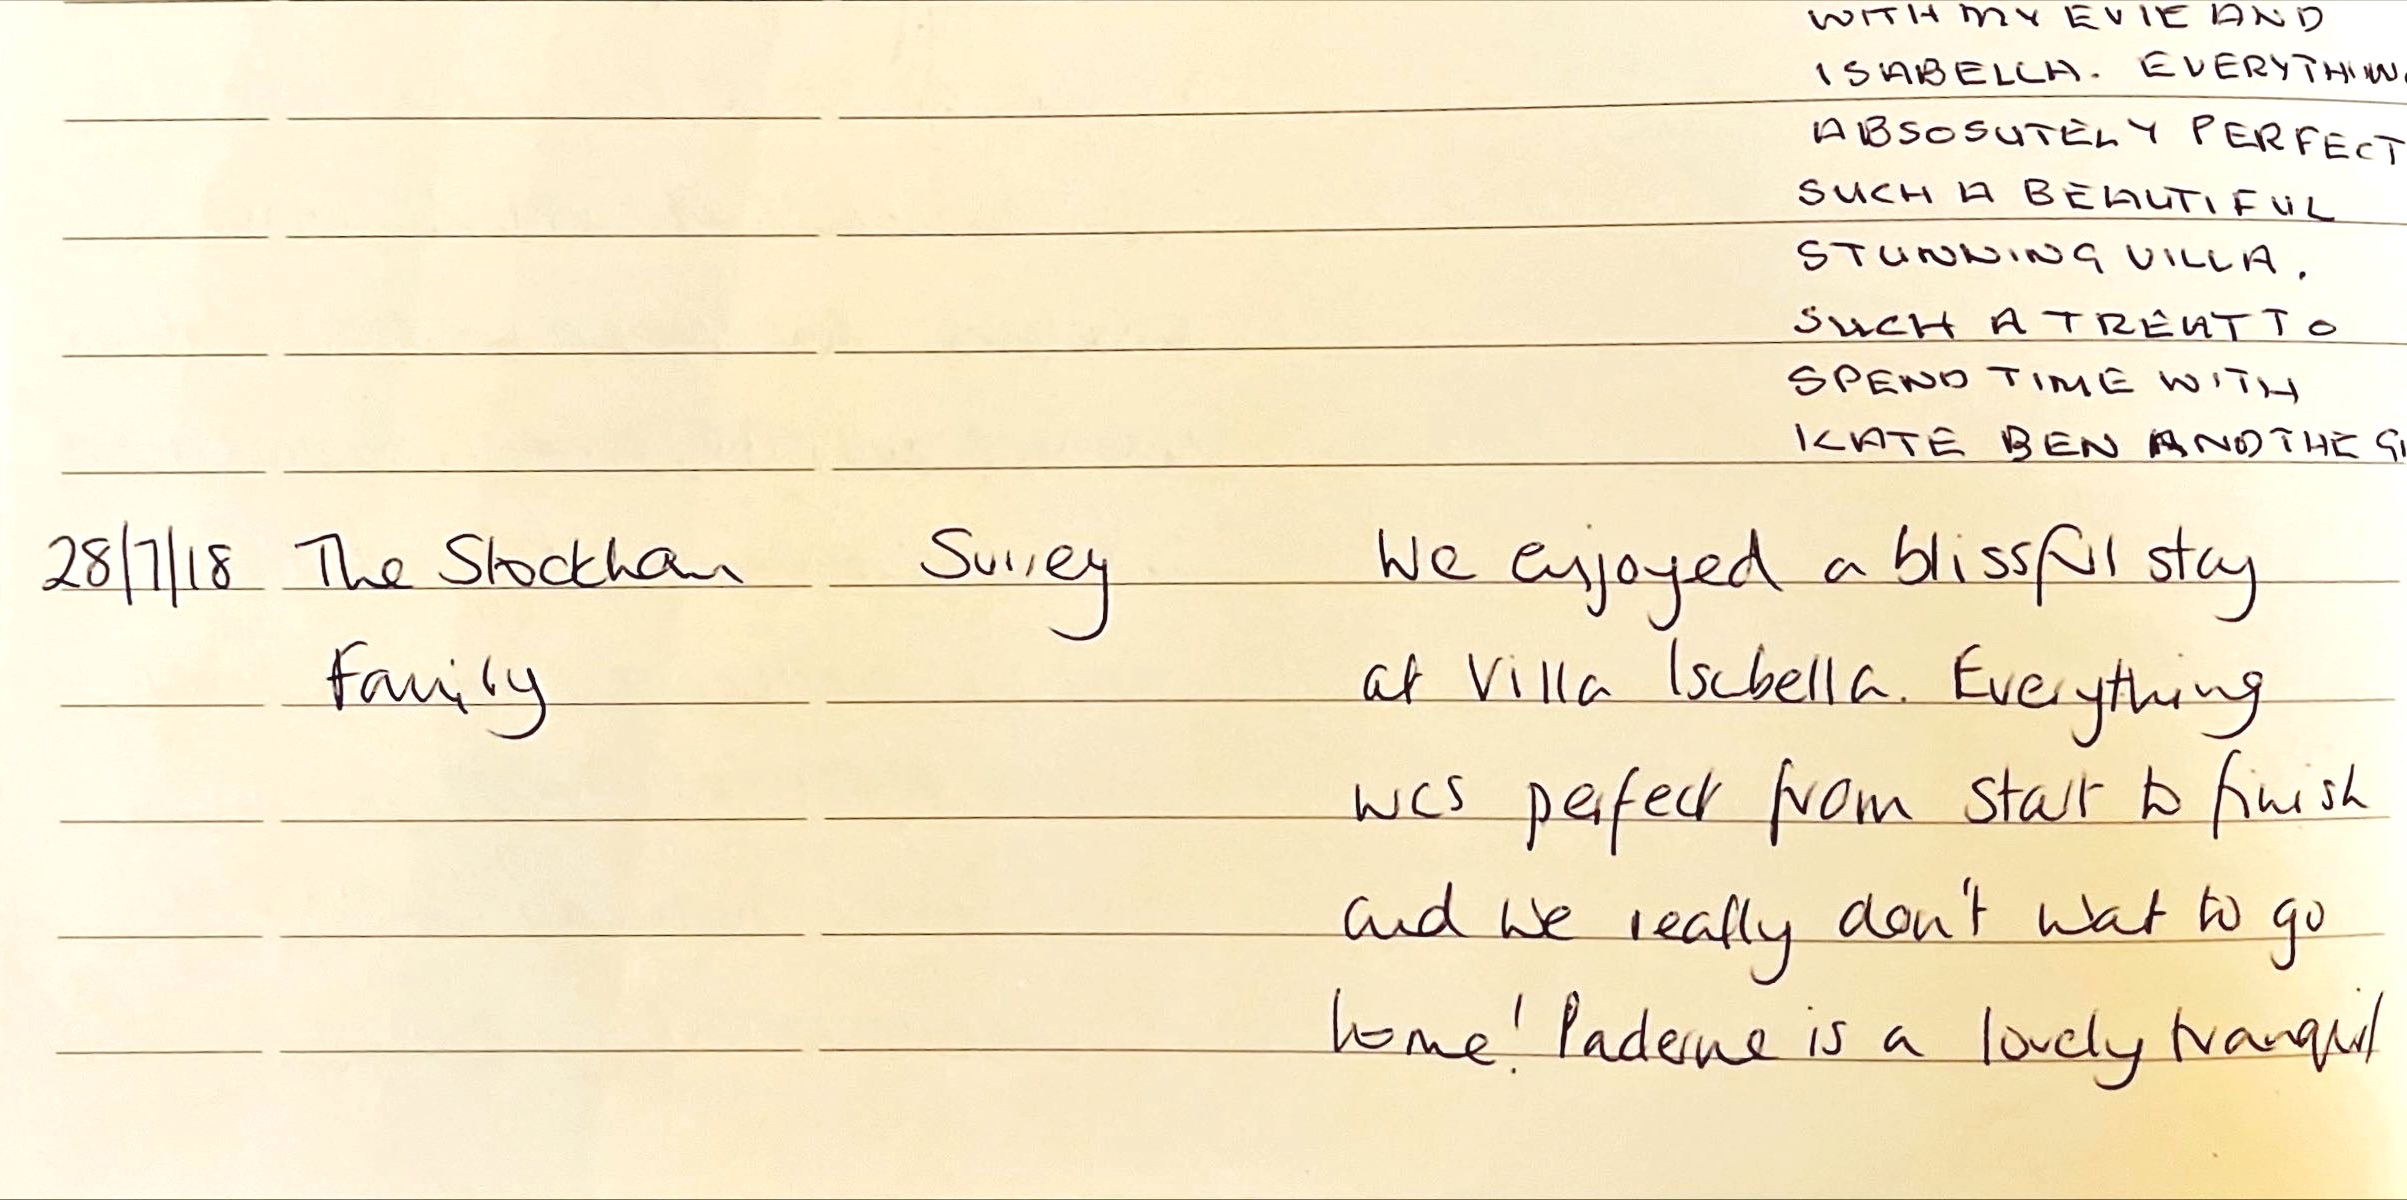 WITH MY EVIE AND
ISABELLA. EVERYTHIN
ABSOSUTELY PERFECT
SUCH A BEAUTIFUL
STUNNING VILLA.
SUCH A TREAT TO
SPEND TIME WITH
KATE BEN AND THE GI
28/7/18 The Stockham Surrey We enjoyed a blissful stay
Family at Villa Isabella. Everything
was perfect from start to finish
and we really don't wat to go
home! Paderne is a lovely tranquil